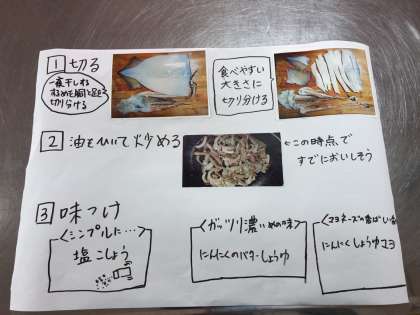 1 切る
一夜干しする
するめを胴と足に
切り分ける
食べやすい
大きさに
切り分ける
2 油をひいて炒める
←この時点で
すでにおいしそう
3 味つけ
〈シンプルに…〉
塩こしょう
〈ガッツリ濃いめの味〉
にんにくのバターしょうゆ
〈マヨネーズの香ばしい
にんにくしょうゆマヨ